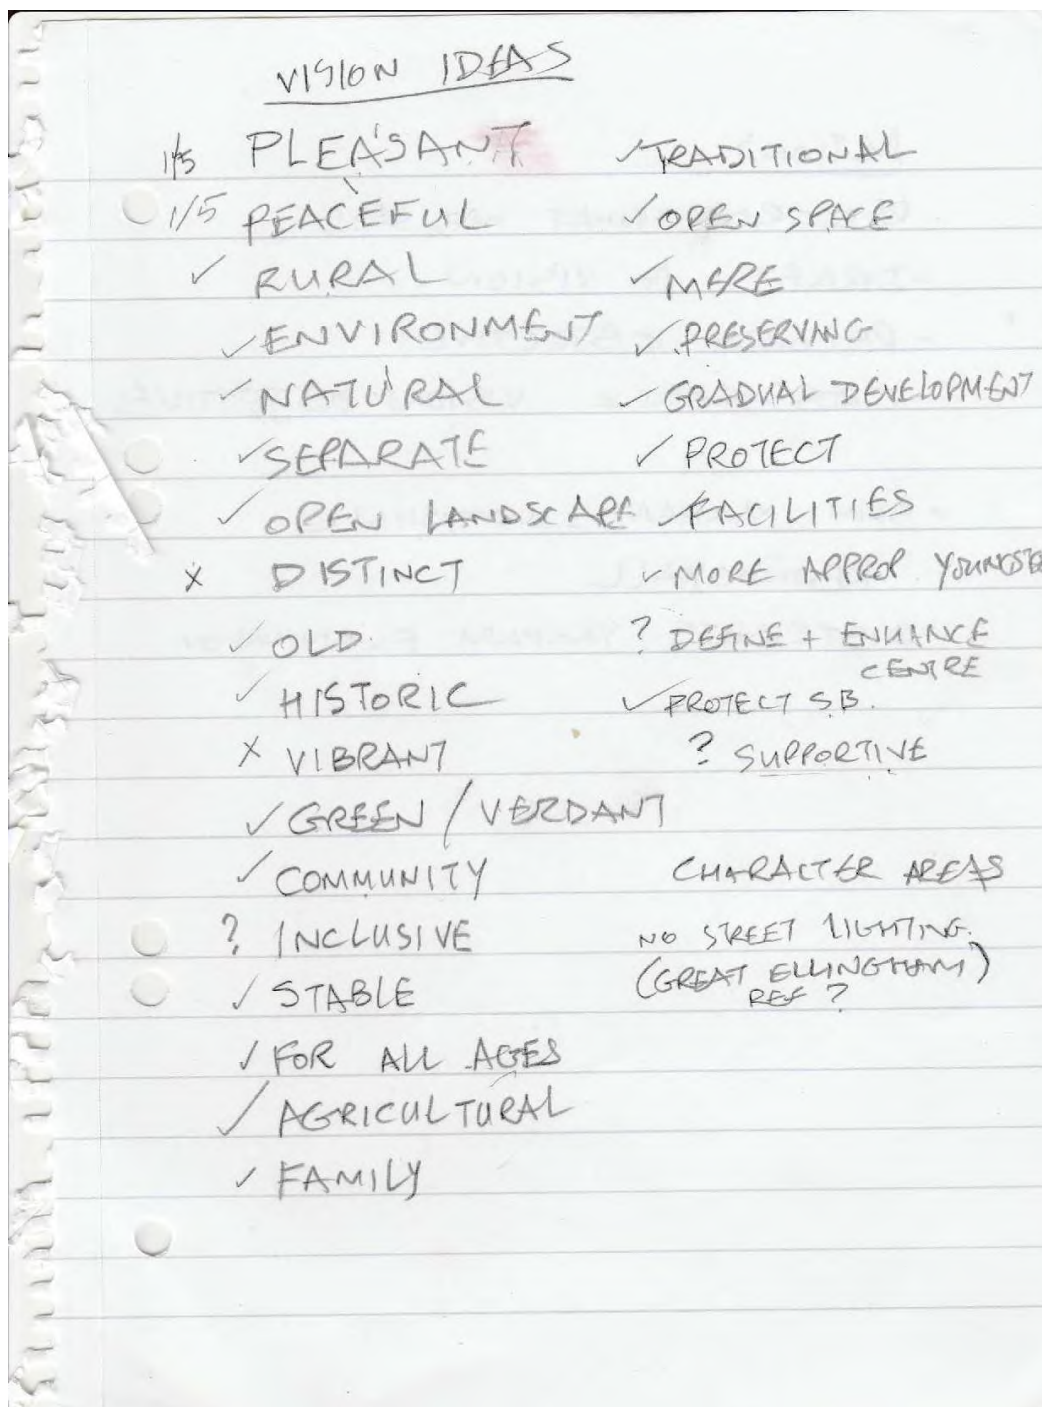 VISION IDEAS
1/5 PLEASANT
1/5 PEACEFUL
✓ RURAL
✓ ENVIRONMENT
✓ NATURAL
✓ SEPARATE
✓ OPEN LANDSCAPE
x DISTINCT
✓ OLD.
✓ HISTORIC
x VIBRANT
✓ GREEN / VERDANT
✓ COMMUNITY
? INCLUSIVE
✓ STABLE
✓ FOR ALL AGES
✓ AGRICULTURAL
✓ FAMILY
✓ TRADITIONAL
✓ OPEN SPACE
✓ MERE
✓ PRESERVING
✓ GRADUAL DEVELOPMENT
✓ PROTECT
✓ FACILITIES
✓ MORE APPROP
? DEFINE + ENHANCE
CENTRE
✓ PROTECT S.B.
? SUPPORTIVE
CHARACTER AREAS
NO STREET LIGHTING.
(GREAT ELLINGHAM)
REF ?